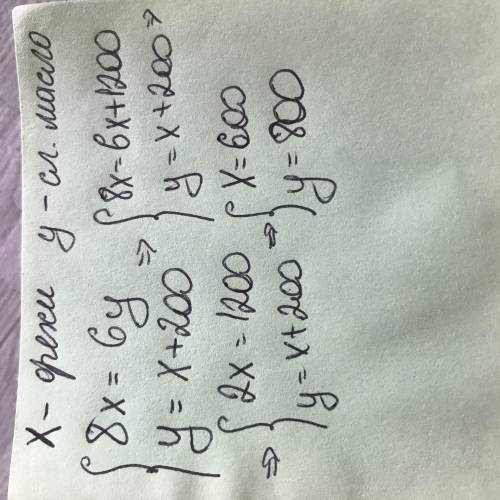 x - орехи y - сл. масло
{8x = 6y
y = x + 200 ⇒ {8x = 6x + 1200
y = x + 200 ⇒
⇒ {2x = 1200
y = x + 200 ⇒ {x = 600
y = 800